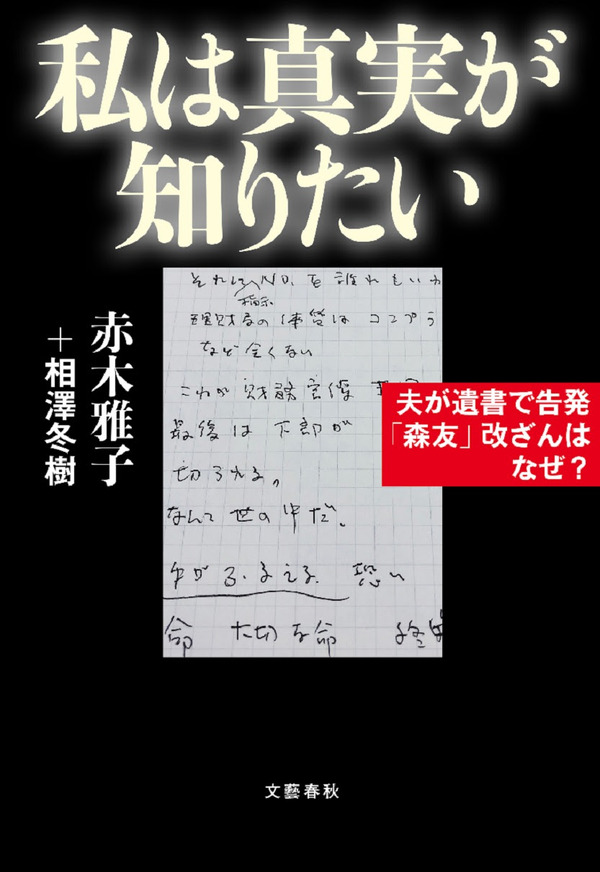 私は真実が
知りたい
赤木雅子
+相澤冬樹
それにNO.を誰れもいわ
指示
理財局の体質はコンプラ
など全くない
これが財務官僚
最後は下部が
切られる。
なんて世の中だ。
手がふるえる。恐い
命 大切な命 終止
夫が遺書で告発
「森友」改ざんは
なぜ?
文藝春秋